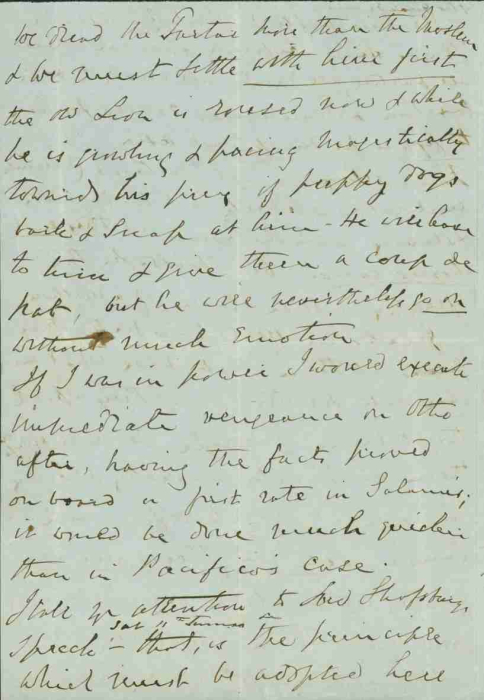 we dread the Tartar more than the Moslem
& we must settle with him first
the old Lion is roused now & while
he is growling & pacing majestically
towards his prey if puppy dogs
bark & snap at him - He will have
to turn & give them a coup de
pat, but he will nevertheless go on
without much emotion
If I was in power I would execute
immediate vengeance on Otho
after, having the facts proved
on board a first rate in Salamis;
it would be done much quicker
than in Pacifico's case.
I call yr attention to Lord Shaftsbury
speech - that, is the principle
which must be adopted here